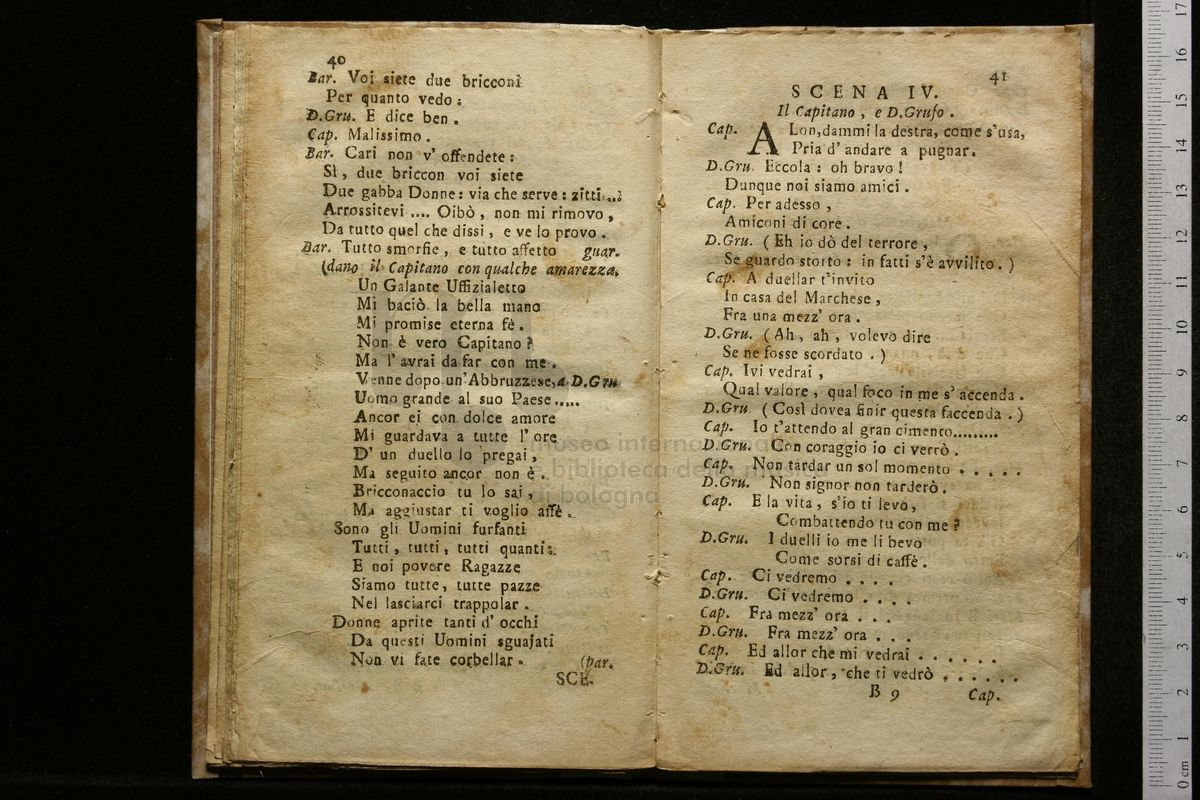 40
Bar. Voi siete due bricconi
Per quanto vedo:
D.Gru. E dice ben.
Cap. Malissimo.
Bar. Cari non v' offendete:
Sì, due briccon voi siete
Due gabba Donne: via che serve: zitti...:
Arrossitevi .... Oibò, non mi rimovo,
Da tutto quel che dissi, e ve lo provo.
Bar. Tutto smorfie, e tutto affetto guar-
(dano il Capitano con qualche amarezza.
Un Galante Uffizialetto
Mi baciò la bella mano
Mi promise eterna fè.
Non è vero Capitano?
Ma l' avrai da far con me.
Venne dopo un' Abbruzzese, a D.Gru
Uomo grande al suo Paese.....
Ancor ei con dolce amore
Mi guardava a tutte l' ore
D' un duello lo pregai,
Ma seguito ancor non è.
Bricconaccio tu lo sai,
Ma aggiustar ti voglio affè.
Sono gli Uomini furfanti
Tutti, tutti, tutti quanti:
E noi povere Ragazze
Siamo tutte, tutte pazze
Nel lasciarci trappolar.
Donne aprite tanti d' occhi
Da questi Uomini sguajati
Non vi fate corbellar. (par.
SCE-
41
SCENA IV.
Il Capitano, e D.Grufo.
Cap. ALon, dammi la destra, come s'usa,
Pria d' andare a pugnar.
D.Gru. Eccola: oh bravo!
Dunque noi siamo amici.
Cap. Per adesso,
Amiconi di core.
D.Gru. (Eh io dò del terrore,
Se guardo storto: in fatti s'è avvilito.)
Cap. A duellar t'invito
In casa del Marchese,
Fra una mezz' ora.
D.Gru. (Ah, ah, volevo dire
Se ne fosse scordato.)
Cap. Ivi vedrai,
Qual valore, qual foco in me s' accenda.
D.Gru (Così dovea finir questa faccenda.)
Cap. Io t'attendo al gran cimento.........
D.Gru. Con coraggio io ci verrò.
Cap. Non tardar un sol momento . . . . .
D.Gru. Non signor non tarderò.
Cap. E la vita, s'io ti levo,
Combattendo tu con me?
D.Gru. I duelli io me li bevo
Come sorsi di caffè.
Cap. Ci vedremo . . . .
D.Gru. Ci vedremo . . . .
Cap. Fra mezz' ora . . .
D.Gru. Fra mezz' ora . . .
Cap. Ed allor che mi vedrai . . . . . .
D.Gru. Ed allor, che ti vedrò , . . . . .
B 9 Cap.
museo internazionale
e biblioteca della musica
di bologna
17
16
15
14
13
12
11
10
9
8
7
6
5
4
3
2
1
0 cm